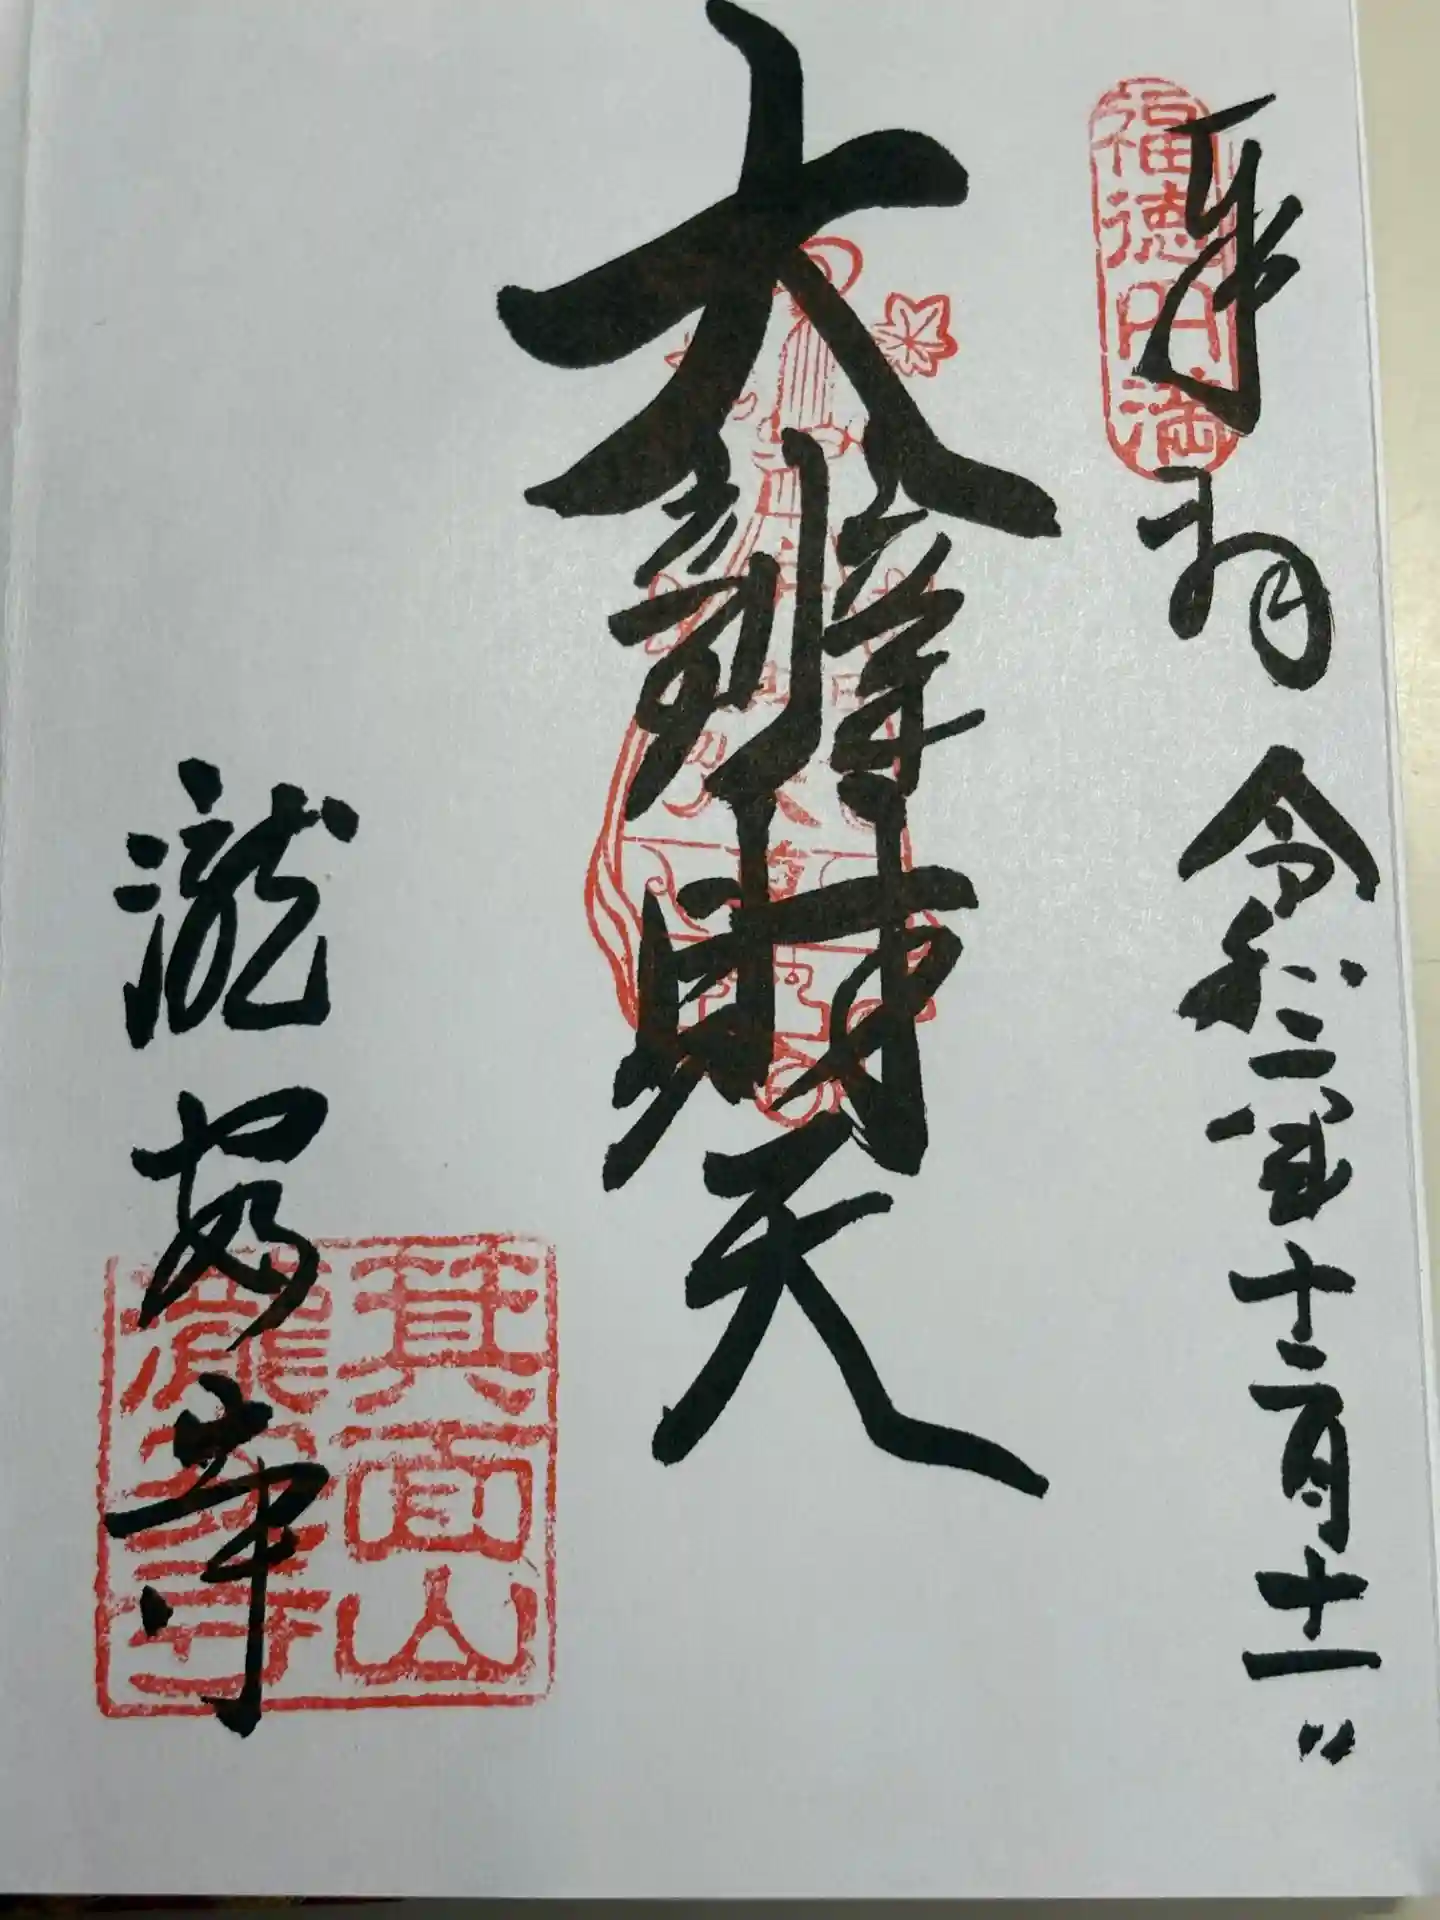 福徳円満
奉拝 令和二年十二月十一日
大辨財天
瀧安寺
箕面山
瀧安寺